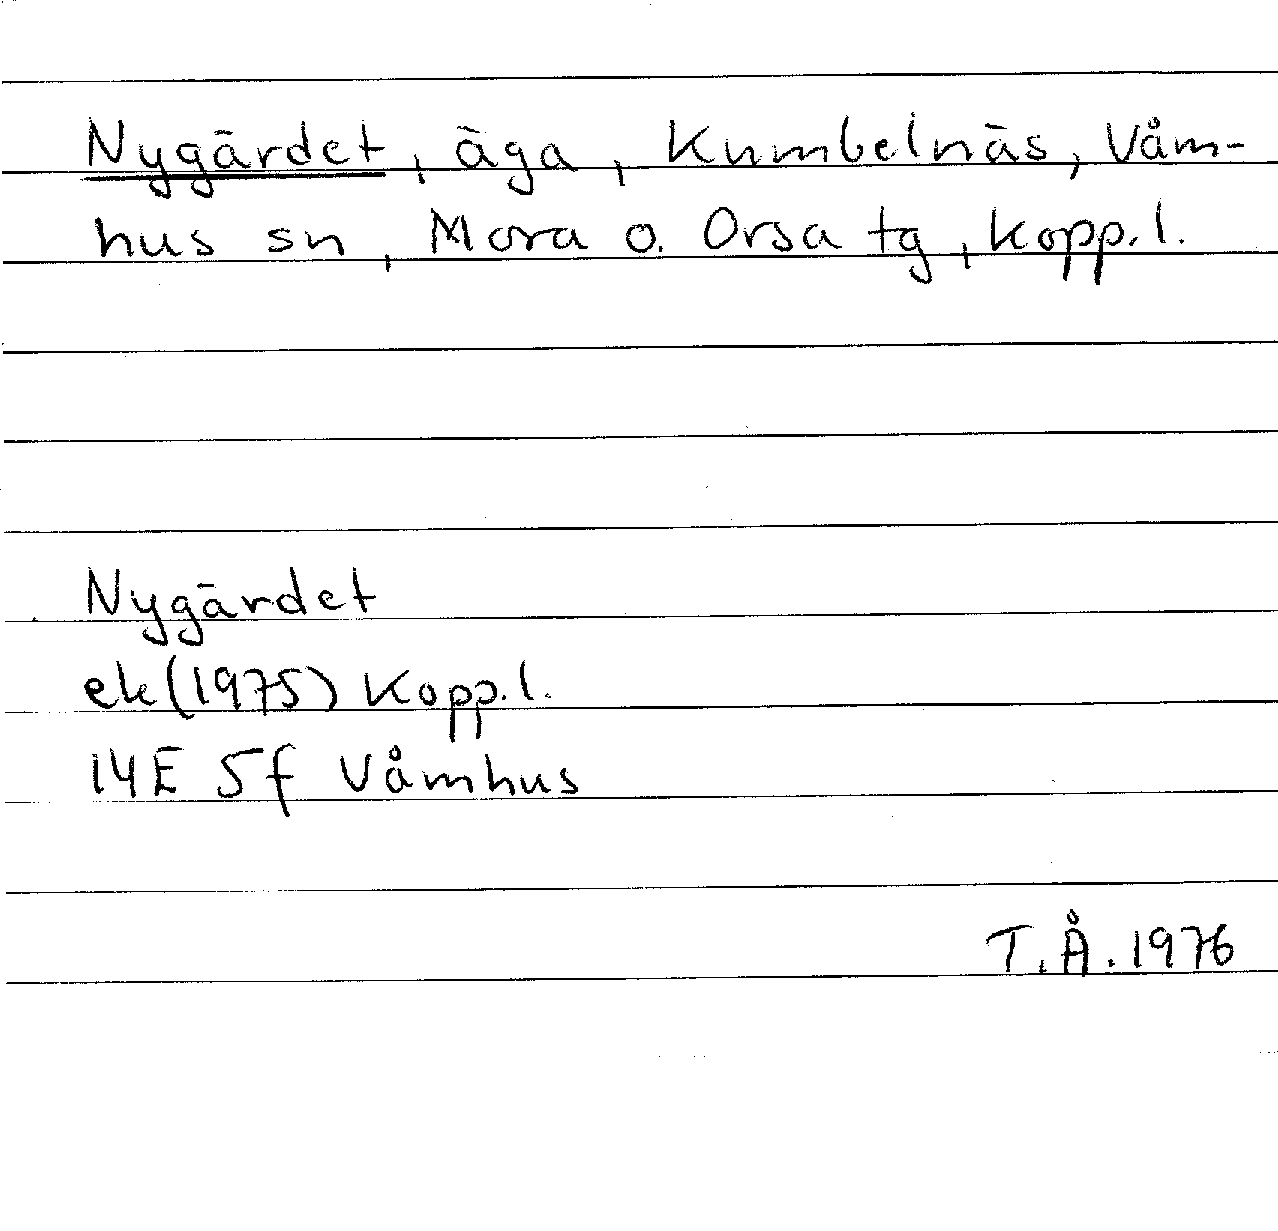 Nygärdet, äga, Kumbelnäs, Våm-
hus sn, Mora o. Orsa tg, Kopp.l.
Nygärdet
ek (1975) Kopp.l.
14E 5f Våmhus
T.Å. 1976